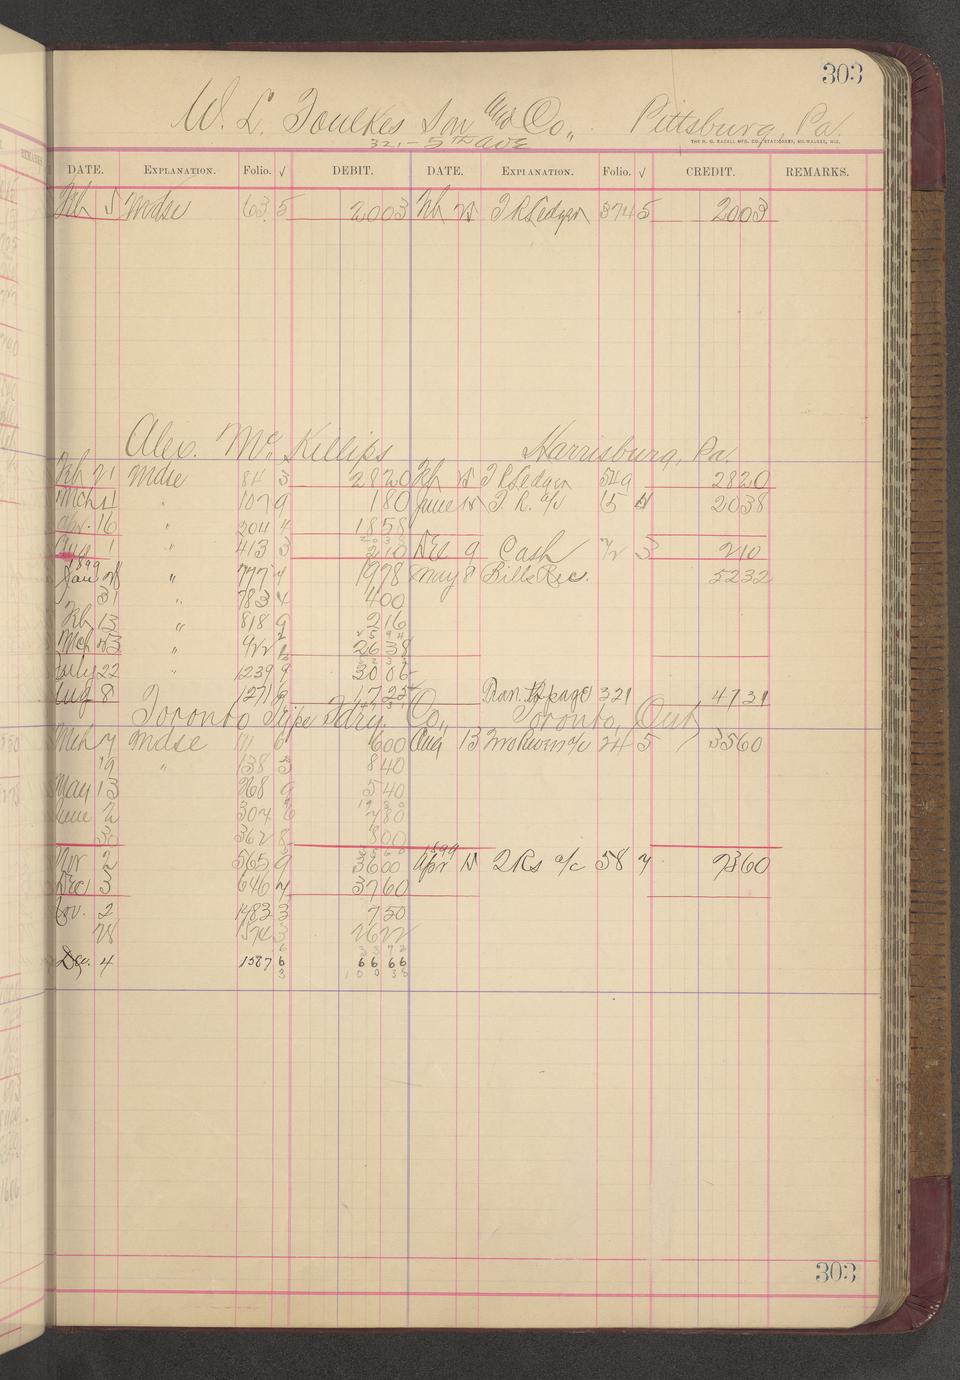 303
W. L. Foulkes Son and Co., Pittsburg, Pa.
321 - 5TH AVE
THE H. G. RAZALL MFG. CO., STATIONERS, MILWAUKEE, WIS.
DATE. EXPLANATION. Folio. √ DEBIT. DATE. EXPLANATION. Folio. √ CREDIT. REMARKS.
Feb 5 Mdse 63 5 2003 Feb 15 T R Ledger 374 5 2003
Alex. Mc Killips Harrisburg, Pa.
Feb 21 Mdse 84 3 2820 Feb 15 T R Ledger 549 2820
Mch 4 " 107 9 180 June 15 T. R. a/c 15 4 2038
Apr. 16 " 204 4 1858
2038
Aug 1 " 413 3 210 Dec 9 Cash 72 3 210
1899
Jan 28 " 777 4 1978 May 8 Bills Rec. 5232
31 " 783 4 400
Feb 13 " 818 9 216
2594
Mch 23 " 922 2638
July 22 " 1239 9 3006
Aug 8 1271 9 1725 Tran. to page 321 4731
Toronto Pipe Fdry. Co., Toronto, Ont
Mch 7 Mdse 111 6 600 Aug 13 24 5 3560
19 " 138 3 840
May 13 268 9 540
1980
June 2 304 6 780
30 362 8 800
3560
1899
Nov 2 565 9 3600 Apr 15 2Rs a/c 58 7 7360
Dec 3 646 7 3760
Nov. 2 1483 3 750
28 1574 3 2622
3372
Dec. 4 1587 6 6666
3 10038
303